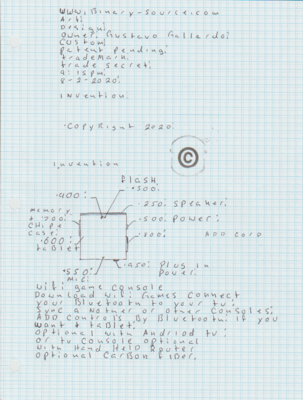 www.Binary-source.com
Art:
Design:
Owner: Gustavo Gallardo:
Custom:
patent pending:
trademark:
trade secret:
9:15pm.
8-2-2020:
Invention:
.CopyRight 2020.
©
Invention
Flash
.500:
.400:
.250: speaker:
memory
+ 700:
chips
case:
.500: power:
.800:
ADD card
.600:
tablet
.550:
mic:
.450: plug in
power.
Wifi game console
Download Wifi Games Connect
your Bluetooth to your tv:
Sync Another or other Consoles:
ADD Controls By Bluetooth: If you
want a tablet:
optional with Andriod tv:
or tv console optional
with Hand Held Router
optional Carbon Fiber.